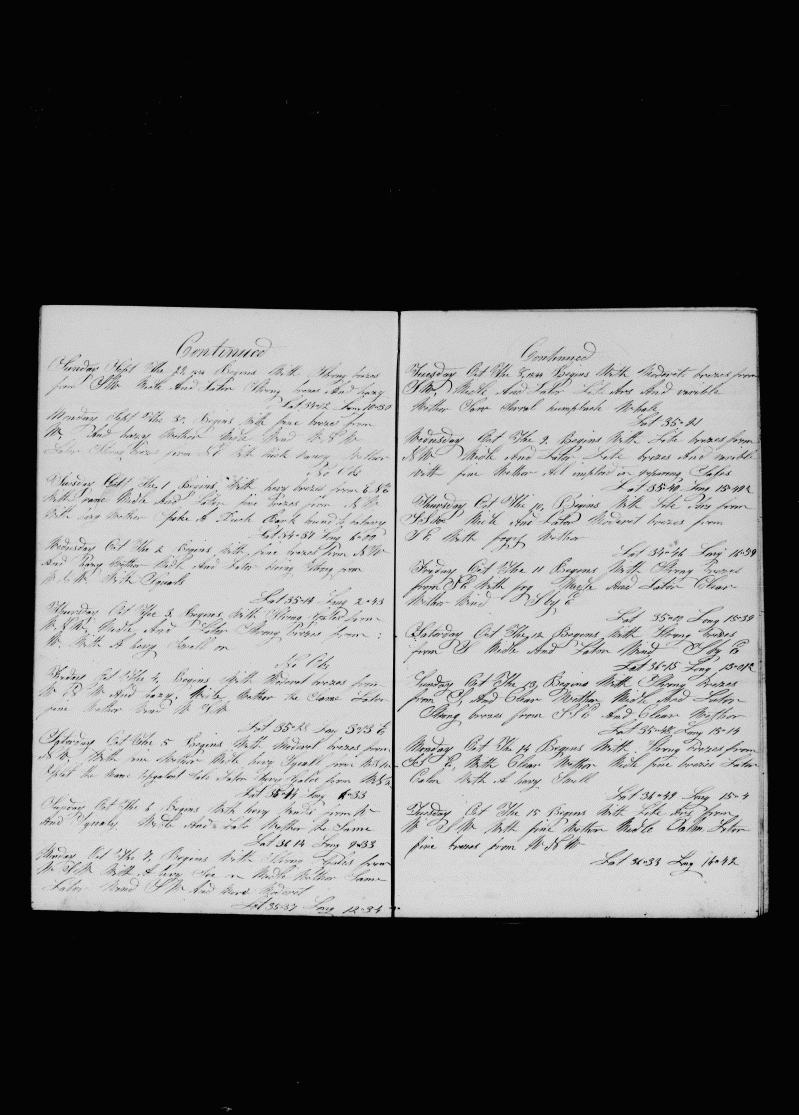 Continued
Sunday Sept The 29 Begins With Strong brezes
from SW Midle And Later Strong brezes And hazy
Lat 34-12 Long 10-30
Monday Sept The 30, Begins With fine brezes from
W, And hazy Wether Midle Wind W S W
Later Strong brezes from N E With thick Wether
No Obs
Tuesday Oct The 1 Begins With hevy brezes from
With rane Midle And Later fine brezes from N W
With Wether Spoke A Bark bound to
Lat 34-37 Long 6-00
Wednesday Oct The 2 Begins With fine brezes from N W
And Wether Midle And Later Strong from
With Squals
Lat 35-14 Long 2-43
Thursday Oct The 3, Begins With Strong Gales from
W S W, Midle And Later Strong brezes from
W With A hevy Swell on
No Obs
Friday Oct The 4, Begins With Moderat brezes from
W And Midle Wether the Same Later
fine Wether Wind W S W
Lat 35-28 Long 5-23 E
Saturday Oct The 5 Begins With Moderat brezes from
N W, With Wether Midle hevy Squall from W S W
Split the Later hevy Gales from W S W
Long 8-33
Sunday Oct The 6 Begins With hevy from W
And Squaly Midle And Late Wether the Same
Lat 36 14 Long 9-33
Monday Oct The 7, Begins With Strong Gales from
W S W With A hevy Sea on Midle Wether Same
Later Wind S W And More Moderat
Lat 35-37 Long 12-34
Continued
Tuesday Oct The 8 Begins With Moderate brezes from
S W, Midle And Later Lite Airs And varible
Wether Saw Saval humpback Whale
Lat 35-21
Wednesday Oct The 9, Begins With Lite brezes from
N W Midle And Later Lite brezes And varible
With fine Wether All imploied in reparing Sails
Lat 35-40 Long 15-40
Thursday Oct The 10, Begins With Lite Airs from
Midle And Later Moderat brezes from
S E With fogy Wether
Lat 34-46 Long 15-39
Friday Oct The 11 Begins With Strong Brezes
from S E With fog Midle And Later Clear
Wether Wind S by E
Lat 35-10 Long 15-39
Saturday Oct The 12 Begins With Strong brezes
from S Midle And Later Wind S by E
Lat 36-15 Long
Sunday Oct The 13, Begins With Strong Brezes
from S, And Clear Wether Midle And Later
Strong brezes from S S E And Clear Wether
Lat 35-48 Long 15-14
Monday Oct The 14 Begins With Strong brezes from
S S E, With Clear Wether Midle fine brezes Later
Calm With A hevy Swell
Lat 36-49 Long 15-4
Tuesday Oct The 15 Begins With Lite Airs from
W S W With fine Wether Midle Calm Later
fine brezes from W N W
Lat 36-33 Long 16-42